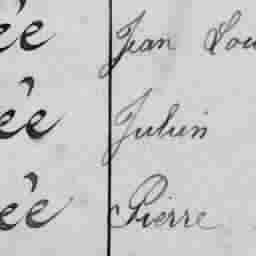 ée Jean Lou
ée Julien
ée Pierre